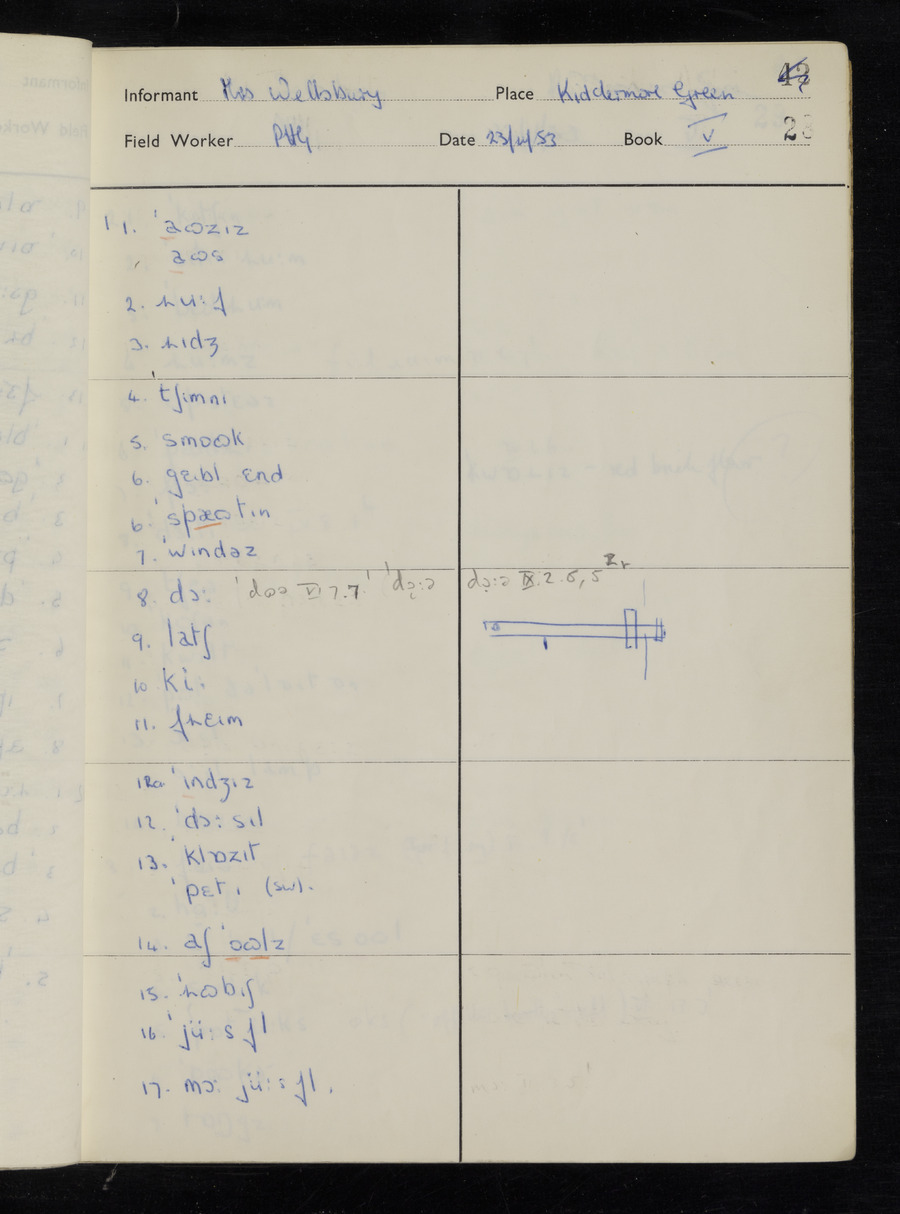 Informant Mrs Wellsbury Place Kiddermore Green
Field Worker PHG Date 23/11/53 Book V 23
1 1. ˈaʊzɪz
aʊs
2. ɹu:f
3. ɹɪdʒ
4. ˈtʃimni
5. smoʊk
6. gɛɪbl ɛnd
6. ˈspæʊtɪn
7. ˈwɪndəz
8. dɔ: ˈdoə VI 7.7 ˈdɔ̣:ə dɔ:ə IX.2.6,5
9. latʃ
10 ki:
11. fɹɛɪm
12a ˈɪndʒɪz
12. ˈdɔ: sɪl
13. ˈklɒzɪt
ˈpɛtɪ (sw).
14. aʃ ˈoʊlz
15. ˈɹʊbɪʃ
16. ˈjü:sfl
17. mɔ: jü:sfl.